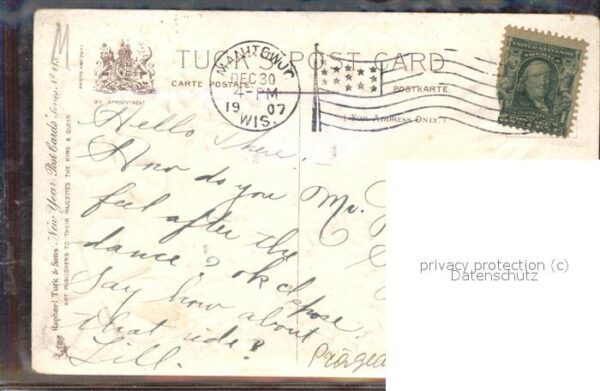 TUCK'S POST CARD
CARTE POSTALE.
POSTKARTE.
(FOR ADDRESS ONLY.)
BY APPOINTMENT
MANITOWOC
DEC 30
4-PM
1907
WIS.
Raphael Tuck & Sons' "New Year" Post Cards Series No
ART PUBLISHERS TO THEIR MAJESTIES THE KING & QUEEN
M
Hello
How do you
feel after the
dance? ok
Say how about
that ride?
Lill.
Mr.
privacy protection (c)
Datenschutz